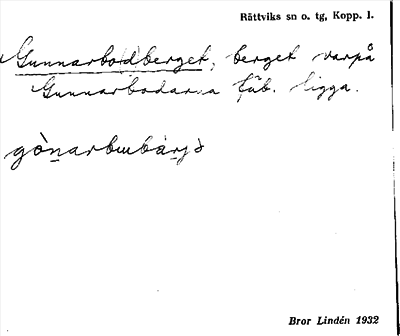 Rättviks sn o. tg, Kopp. l.
Gunnarbodberget, berget varpå
Gunnarbodarna fäb. ligga.
Bror Lindén 1932